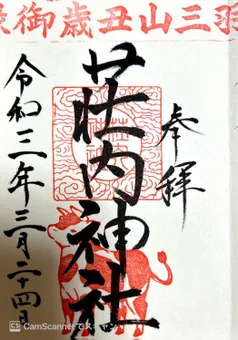 羽三山丑歳御縁
奉拝
荘内神社
令和三年三月二十四日
CS CamScannerでスキャン